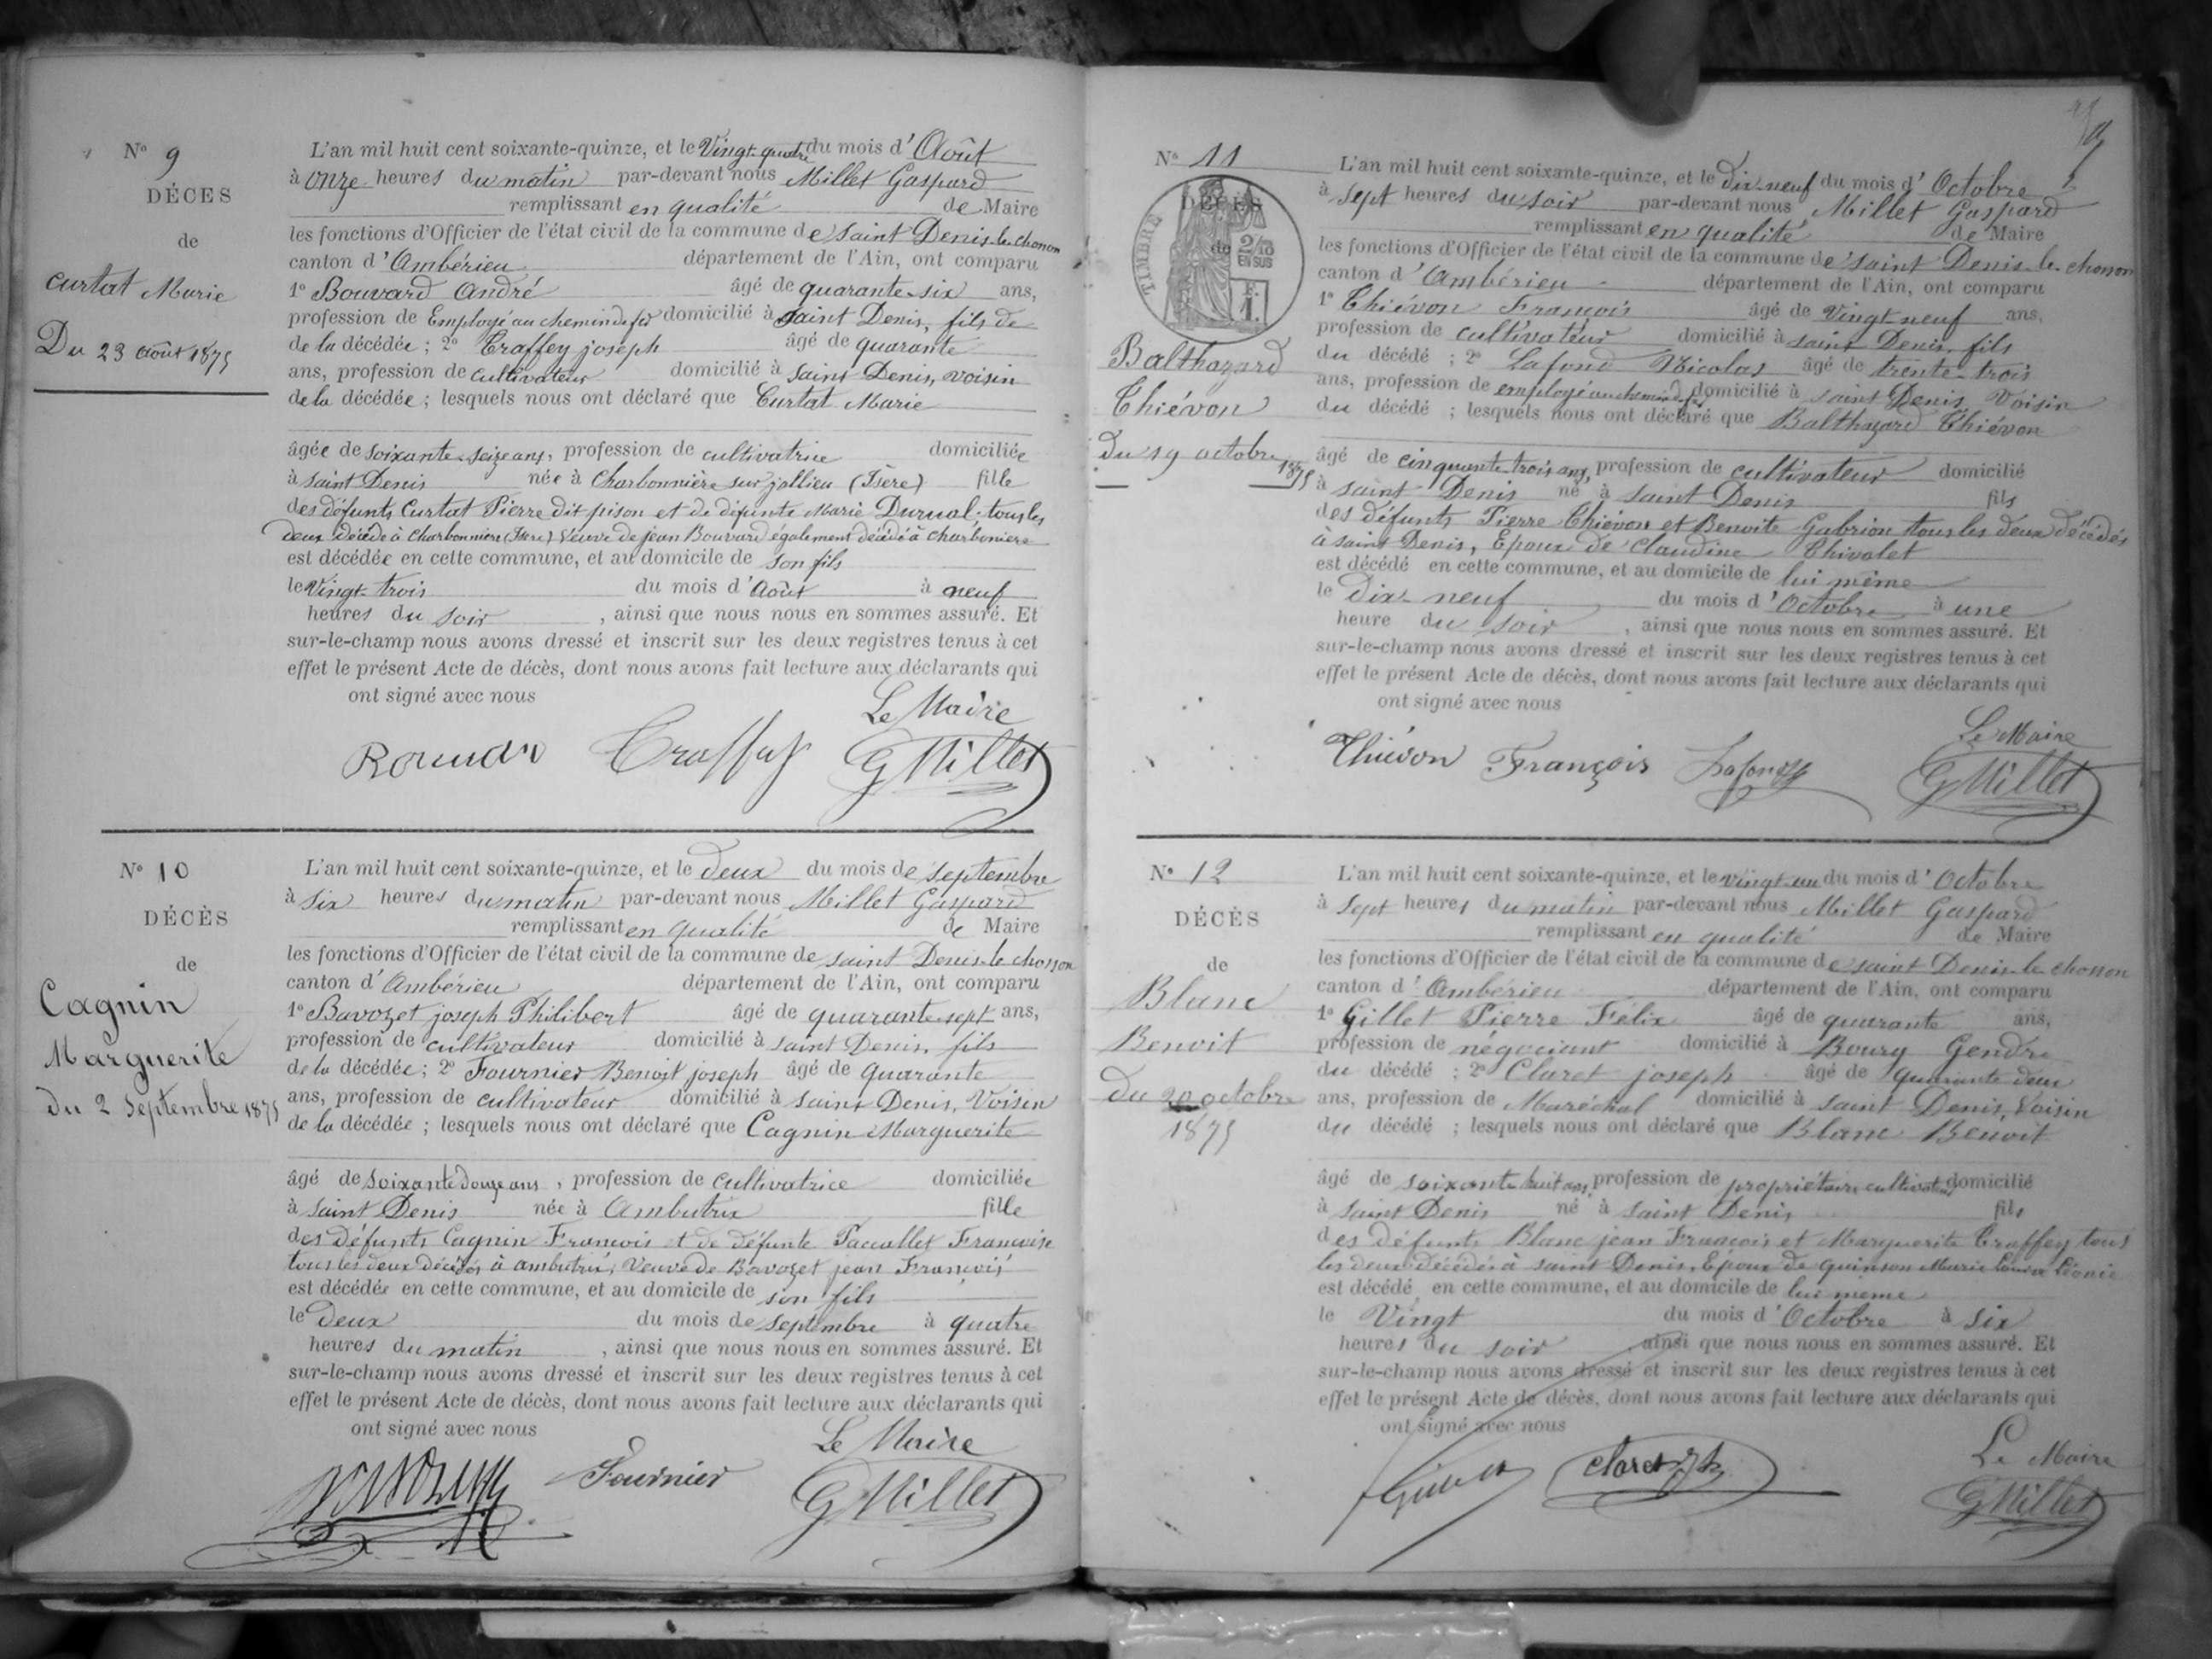 N° 9
DÉCES
de
Curtat Marie
Du 23 août 1875
L'an mil huit cent soixante-quinze, et le Vingt-quatre du mois d'Août
à onze heures du matin par-devant nous Millet Gaspard
remplissant en qualité de Maire
les fonctions d'Officier de l'état civil de la commune de Saint Denis-le-chosson
canton d'Ambérieu département de l'Ain, ont comparu
1° Bouvard André âgé de quarante-six ans,
profession de Employé au chemin de fer domicilié à Saint Denis, fils de
de la décédée ; 2° Traffey joseph âgé de quarante
ans, profession de cultivateur domicilié à Saint Denis, voisin
de la décédée ; lesquels nous ont déclaré que Curtat Marie
âgée de soixante-seize ans, profession de cultivatrice domiciliée
à Saint Denis née à Charbonnière sur jallieu (Isère) fille
des défunts Curtat Pierre dit pison et de défunte Marie Durual tous les
deux décédé à Charbonnière (Isère) Veuve de jean Bouvard également décédé à charbonière
est décédée en cette commune, et au domicile de son fils
le Vingt-trois du mois d'Août à neuf
heures du soir , ainsi que nous nous en sommes assuré. Et
sur-le-champ nous avons dressé et inscrit sur les deux registres tenus à cet
effet le présent Acte de décès, dont nous avons fait lecture aux déclarants qui
ont signé avec nous
Le Maire
Traffey GMillet
N° 10
DÉCÈS
de
Cagnin
Marguerite
du 2 Septembre 1875
L'an mil huit cent soixante-quinze, et le deux du mois de Septembre
à Six heures du matin par-devant nous Millet Gaspard
remplissant en qualité de Maire
les fonctions d'Officier de l'état civil de la commune de Saint Denis-le-chosson
canton d'Ambérieu département de l'Ain, ont comparu
1° Bavozet joseph Philibert âgé de quarante-sept ans,
profession de cultivateur domicilié à Saint Denis, fils
de la décédée ; 2° Fournier Benoit joseph âgé de quarante
ans, profession de cultivateur domicilié à Saint Denis, Voisin
de la décédée ; lesquels nous ont déclaré que Cagnin Marguerite
âgé de soixante douze ans , profession de cultivatrice domiciliée
à Saint Denis née à Ambutrix fille
des défunts Cagnin François et de défunte Paccallet Françoise
tous les deux décédés à ambutrix, Veuve de Bavozet jean François
est décédée en cette commune, et au domicile de son fils
le deux du mois de Septembre à quatre
heures du matin , ainsi que nous nous en sommes assuré. Et
sur-le-champ nous avons dressé et inscrit sur les deux registres tenus à cet
effet le présent Acte de décès, dont nous avons fait lecture aux déclarants qui
ont signé avec nous
Le Maire
Fournier GMillet
N° 11
DÉCÈS
de
TIMBRE
2/10
EN SUS
Balthazard
Thiévon
du 19 octobre
1875
L'an mil huit cent soixante-quinze, et le Dix-neuf du mois d'Octobre
à Sept heures du soir par-devant nous Millet Gaspard
remplissant en qualité de Maire
les fonctions d'Officier de l'état civil de la commune de Saint Denis-le-chosson
canton d'Ambérieu département de l'Ain, ont comparu
1° Thiévon François âgé de Vingt-neuf ans,
profession de cultivateur domicilié à Saint Denis, fils
du décédé ; 2° Lafond Nicolas âgé de trente-trois
ans, profession de employé au chemin de fer domicilié à Saint Denis Voisin
du décédé ; lesquels nous ont déclaré que Balthazard Thiévon
âgé de cinquante-trois ans, profession de cultivateur domicilié
à Saint Denis né à Saint Denis fils
des défunts Pierre Thiévon et Benoite Gabrion tous les deux décédés
à Saint Denis, Epoux de Claudine Thivolet
est décédé en cette commune, et au domicile de lui même
le Dix-neuf du mois d'Octobre à une
heure du soir , ainsi que nous nous en sommes assuré. Et
sur-le-champ nous avons dressé et inscrit sur les deux registres tenus à cet
effet le présent Acte de décès, dont nous avons fait lecture aux déclarants qui
ont signé avec nous
Le Maire
Thiévon François Lafond GMillet
N° 12
DÉCÈS
de
Blanc
Benoit
Du 20 octobre
1875
L'an mil huit cent soixante-quinze, et le vingt-un du mois d'Octobre
à Sept heures du matin par-devant nous Millet Gaspard
remplissant en qualité de Maire
les fonctions d'Officier de l'état civil de la commune de Saint Denis-le-chosson
canton d'Ambérieu département de l'Ain, ont comparu
1° Gillet Pierre Felix âgé de quarante ans,
profession de négociant domicilié à Bourg Gendre
du décédé ; 2° Claret joseph âgé de quarante deux
ans, profession de Maréchal domicilié à Saint Denis, Voisin
du décédé ; lesquels nous ont déclaré que Blanc Benoit
âgé de soixante huit ans, profession de propriétaire cultivateur domicilié
à Saint Denis né à Saint Denis fils
des défunts Blanc jean François et Marguerite Traffey tous
les deux décédés à Saint Denis, Epoux de quinson Marie Louise Léonie
est décédé en cette commune, et au domicile de lui meme
le Vingt du mois d'Octobre à Six
heures du soir , ainsi que nous nous en sommes assuré. Et
sur-le-champ nous avons dressé et inscrit sur les deux registres tenus à cet
effet le présent Acte de décès, dont nous avons fait lecture aux déclarants qui
ont signé avec nous
Le Maire
Claret GMillet